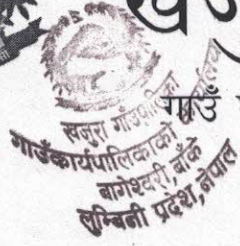 खजुरा गाउँपालिका
गाउँकार्यपालिकाको कार्यालय
बागेश्वरी, बाँके
लुम्बिनी प्रदेश, नेपाल
गाउँ